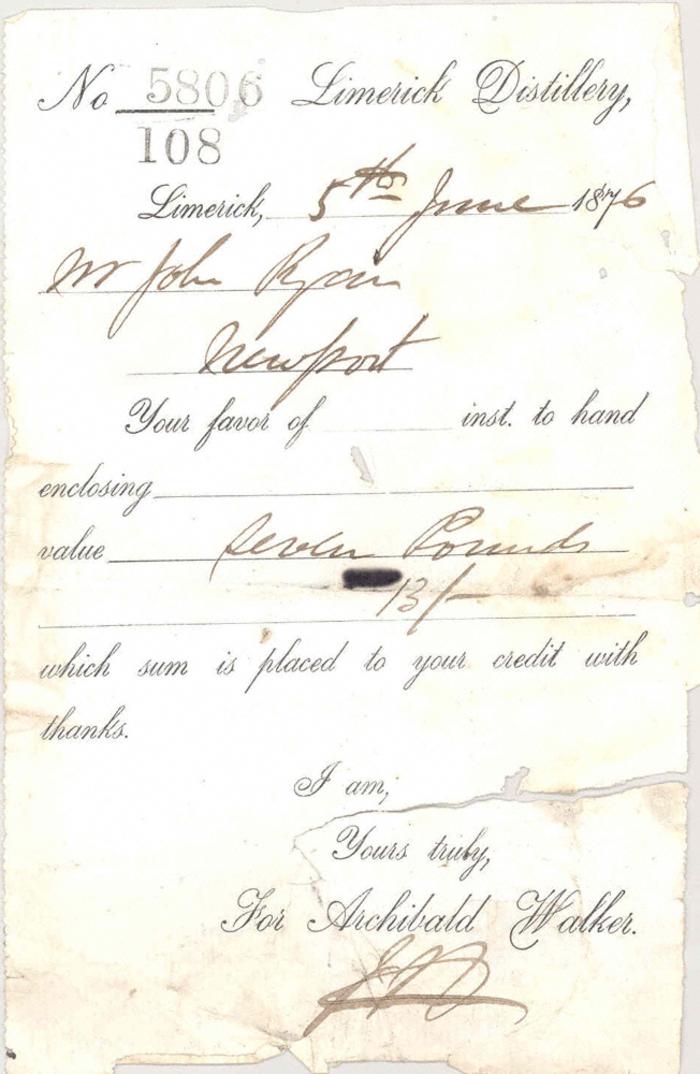 No 5806 Limerick Distillery,
108
Limerick, 5th June 1876
Mr John Ryan
Newport
Your favor of inst. to hand
enclosing
value Seven Pounds
13/-
which sum is placed to your credit with
thanks.
I am,
Yours truly,
For Archibald Walker.